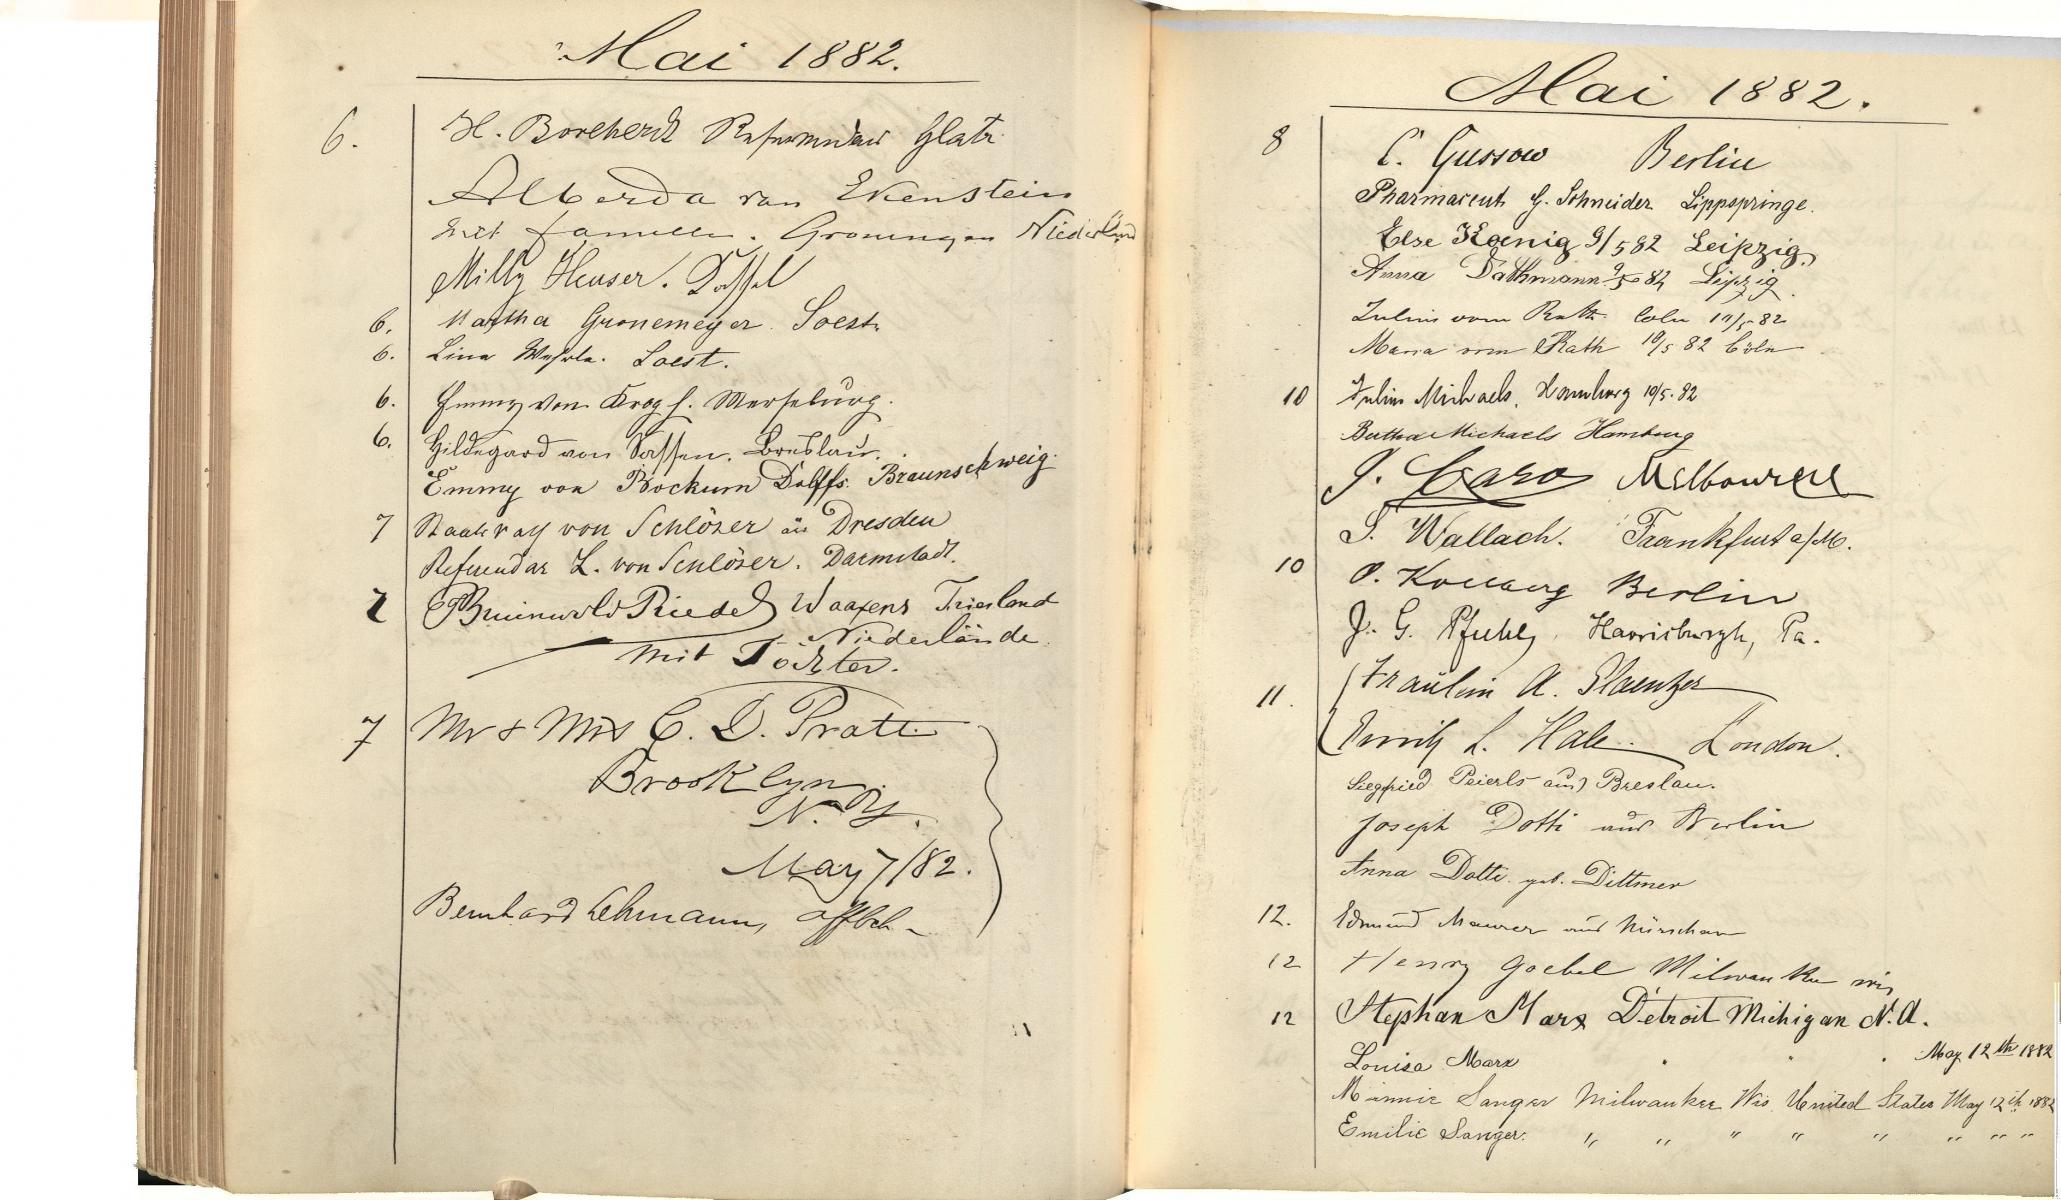 Mai 1882.
6. H. Borcherdt Referendar Glatz
Alberda van Ekenstein
mit Familie. Groningen Niederland
Milly Heuser. Dassel
6. Martha Gronemeyer. Soest.
6. Lina Soest.
6. Emmy von Krogh. Merseburg.
6. Hildegard von Sassen. Breslau.
Emmy von Bockum Dolffs. Braunschweig.
7 Staatsrath von Schlözer aus Dresden
Referendar L. von Schlözer. Darmstadt.
7 Bruinwold Riedel Waaxens Friesland
Niederlande.
mit Tochter.
7 Mr & Mrs C. D. Pratt
Brooklyn
N. Y.
May 7/82.
Bernhard Lehmann,
Mai 1882.
8 C. Gussow Berlin
Pharmaceut G. Schneider Lippspringe.
Else Koenig 9/5 82 Leipzig.
Anna Dathmann 9/5 82 Leipzig.
Julius vom Rath Coln 10/5 82
Maria vom Rath 10/5 82 Cöln
10 Julius Michaels. Hamburg 10/5. 82
Bertha Michaels Hamburg
J. Caro Melbourne
S. Wallach. Frankfurt a/M.
10 Berlin
J. G. Pfuhl, Harrisburgh, Pa.
11. Fraulein A.
Emily L. Hale. London.
Siegfried Peierls aus Breslau.
Joseph Dotti aus Berlin
Anna Dotti geb. Dittmer
12. Edmund Maurer aus Nürschan
12 Henry Goebel Milwaukee Wis
12 Stephan Marx Detroit Michigan N. A.
Louise Marx " " " May 12th 1882
Minnie Sanger Milwaukee Wis. United States May 12th 1882
Emilie Sanger. " " " " " " " "